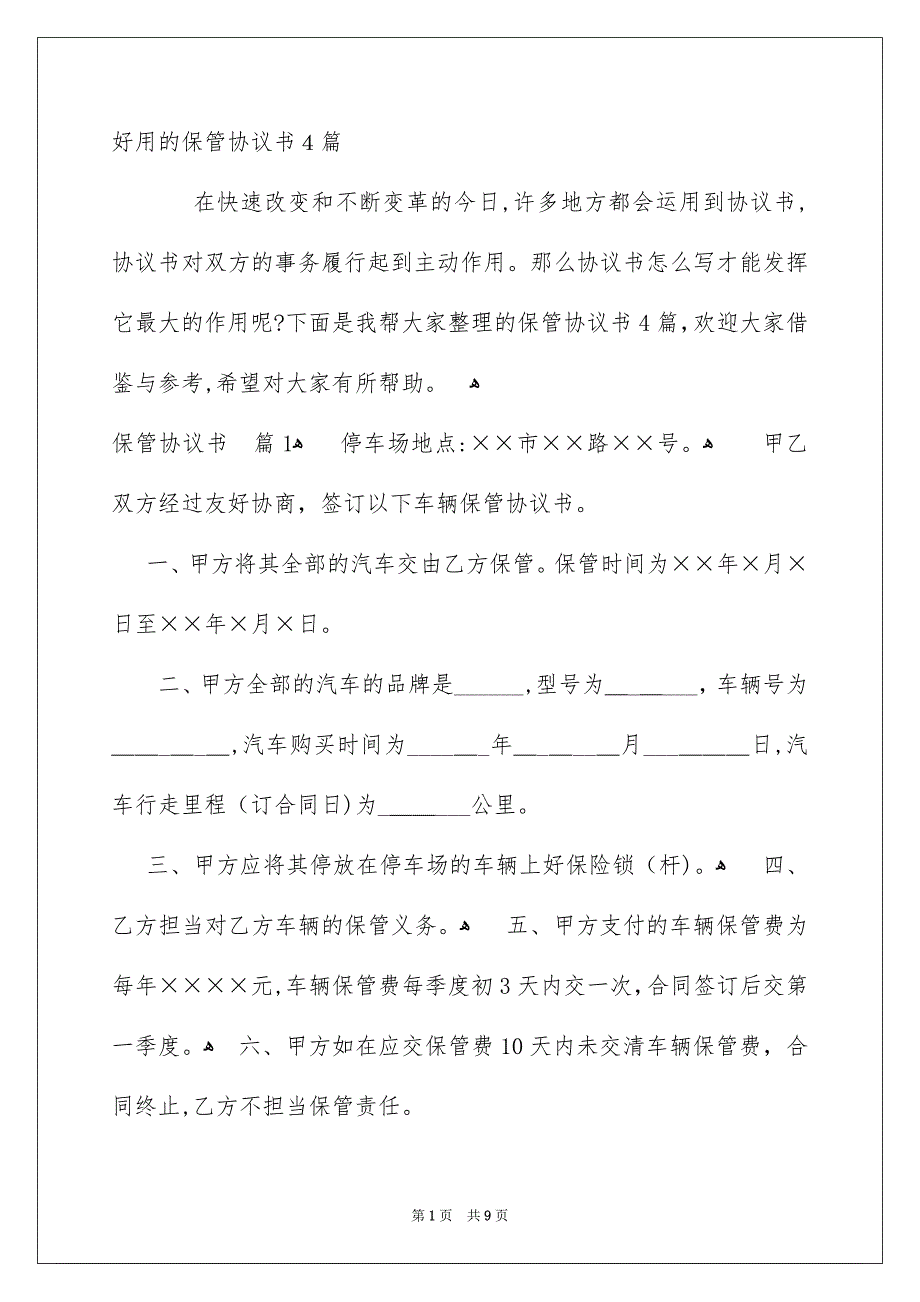 好用的保管协议书4篇
在快速改变和不断变革的今日,许多地方都会运用到协议书,
协议书对双方的事务履行起到主动作用。那么协议书怎么写才能发挥
它最大的作用呢?下面是我帮大家整理的保管协议书4篇,欢迎大家借
鉴与参考,希望对大家有所帮助。 ﻫ
保管协议书 篇1ﻫ 停车场地点:××市××路××号。ﻫ 甲乙
双方经过友好协商，签订以下车辆保管协议书。
一、甲方将其全部的汽车交由乙方保管。保管时间为××年×月×
日至××年×月×日。
二、甲方全部的汽车的品牌是______,型号为________，车辆号为
__________,汽车购买时间为_______年_________月_________日,汽
车行走里程（订合同日)为________公里。
三、甲方应将其停放在停车场的车辆上好保险锁（杆)。ﻫ 四、
乙方担当对乙方车辆的保管义务。ﻫ 五、甲方支付的车辆保管费为
每年××××元,车辆保管费每季度初3天内交一次，合同签订后交第
一季度。ﻫ 六、甲方如在应交保管费10天内未交清车辆保管费，合
同终止,乙方不担当保管责任。
第1页 共9页